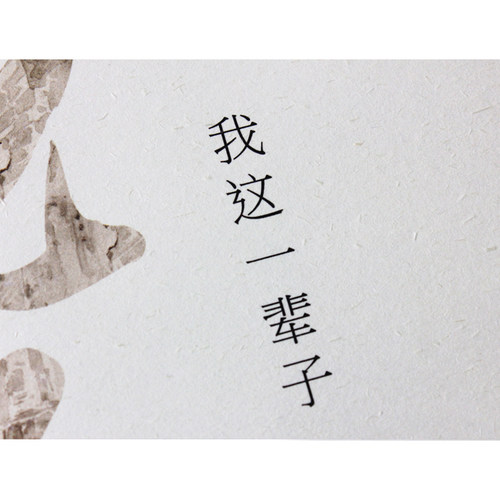 我这一辈子